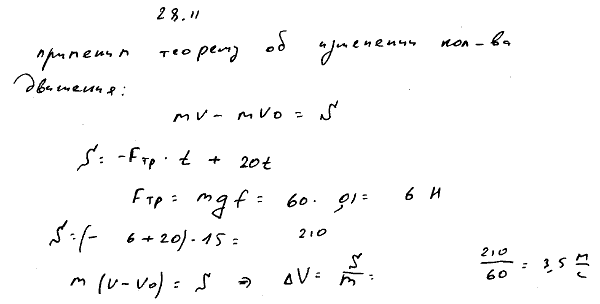 28.11
применим теорему об изменении кол-ва
движения:
mV - mV0 = S
S = -Fтр · t + 20t
Fтр = mgf = 60 · 0,1 = 6 Н
S = (- 6 + 20) · 15 = 210
m (V - V0) = S ⇒ ΔV = S/m = 210/60 = 3,5 м/с